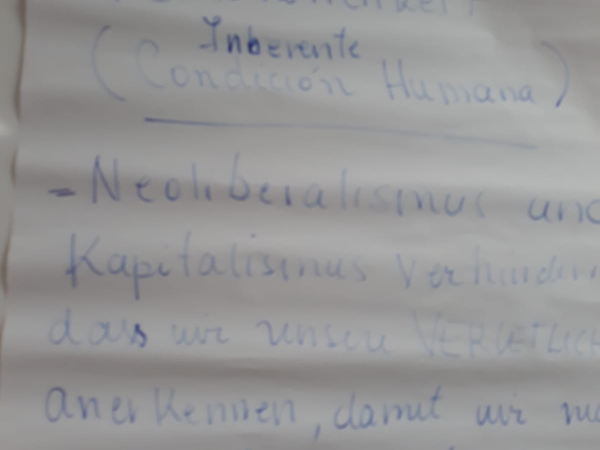 Inherente
(Condición Humana)
- Neoliberalismus und
Kapitalismus verhindern
dass wir unsere VERLETLICH
anerkennen, damit wir